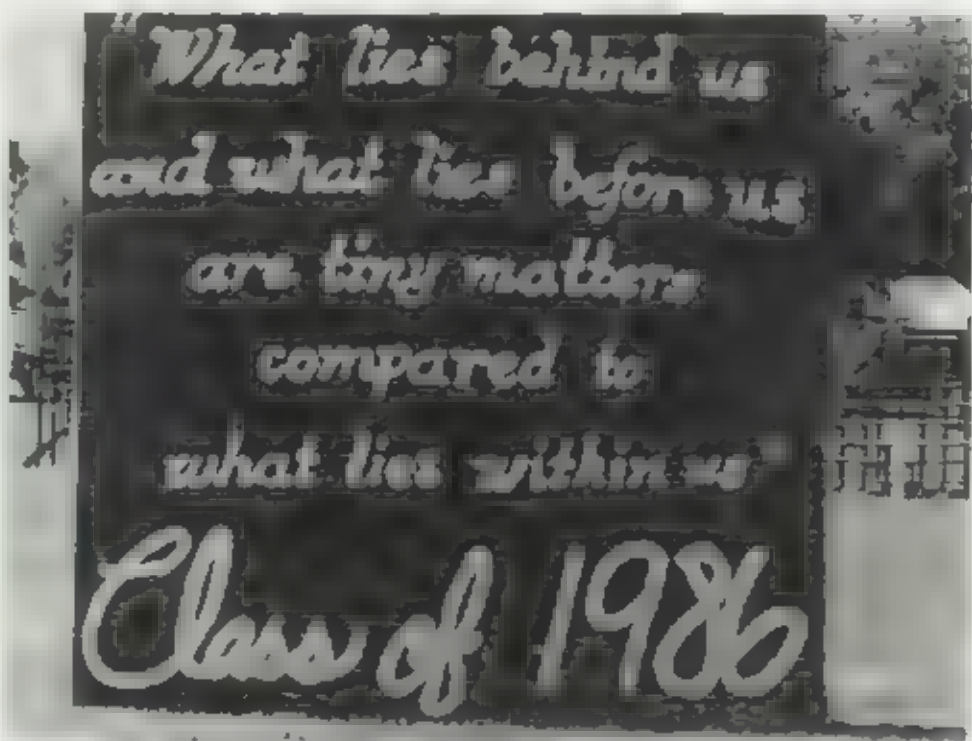 "What lies behind us
and what lies before us
are tiny matters
compared to
what lies within us"
Class of 1986